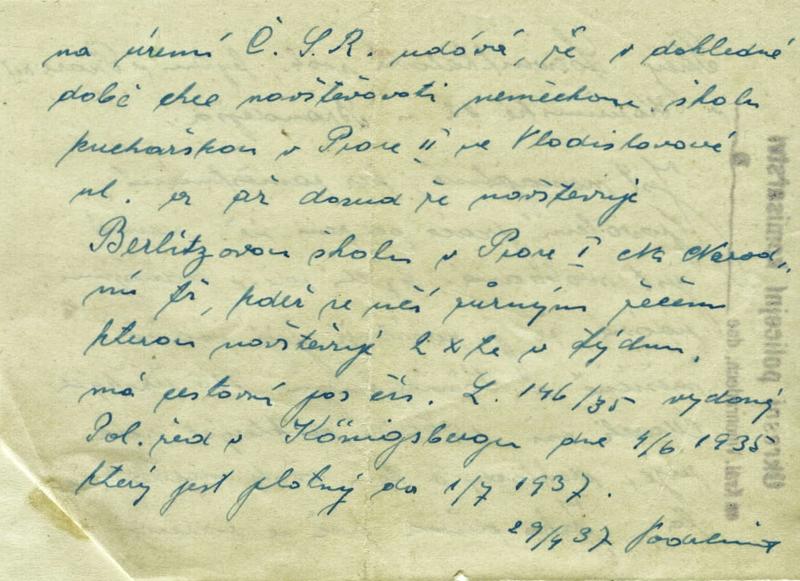 na území Č. S. R. udává, že v dohledné
době chce navštěvovati německou školu
kuchařskou v Praze II ve Vladislavově
ul. a až dosud že navštěvuje
Berlitzovou školu v Praze I Na Národ„
ní tř, kdež se učí různým řečem
kterou navštěvuje 2 x za v týdnu,
má cestovní pas čís. L. 146/35 vydaný
Pol. řed v Königsbergu dne 4/6 1935
který jest platný do 1/7 1937.
29/4 37